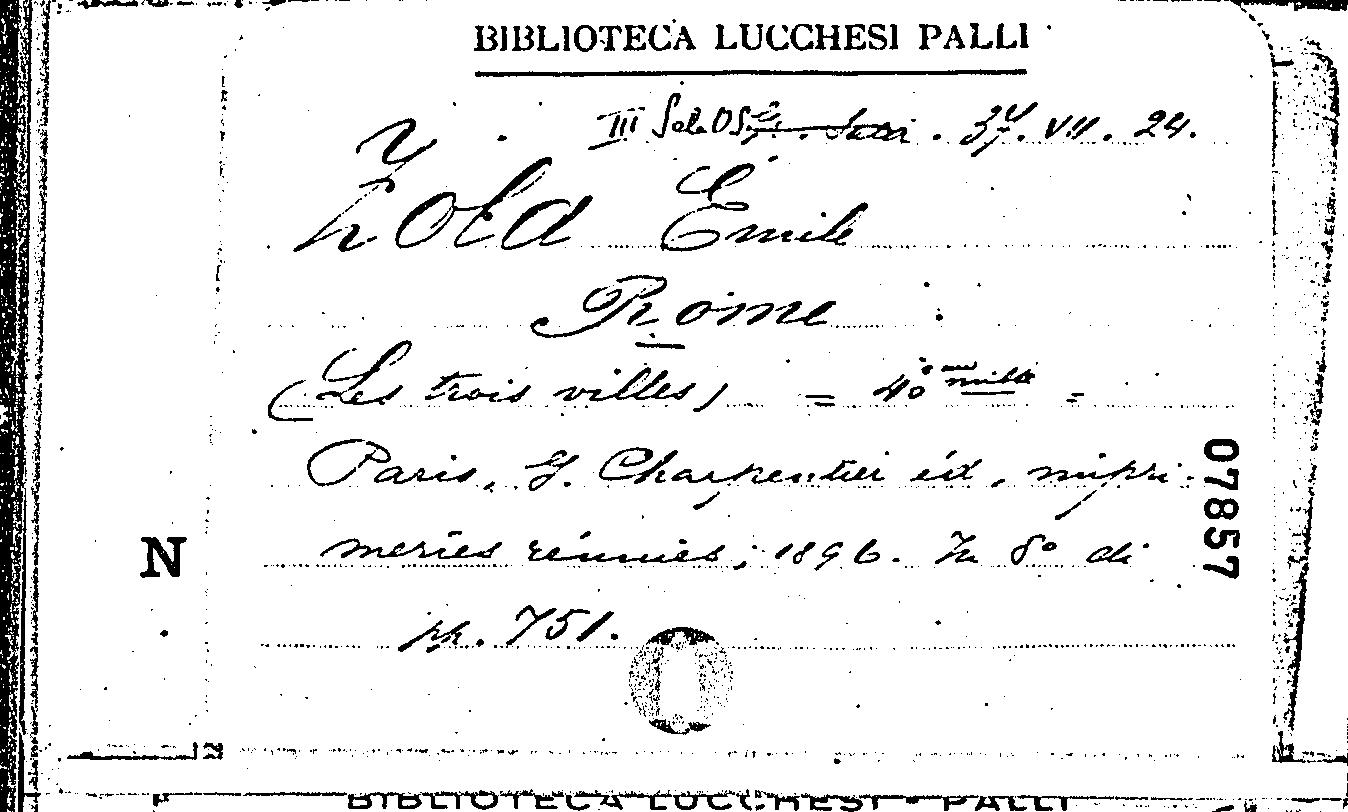 BIBLIOTECA LUCCHESI PALLI
III Sala VII. 24.
Zola Émile
Rome
(Les trois villes) = 40 mille =
Paris, G. Charpentier éd, impri-
meries réunies; 1896. In 8° di
pp. 751.
07857
N
BIBLIOTECA LUCCHESI - PALLI